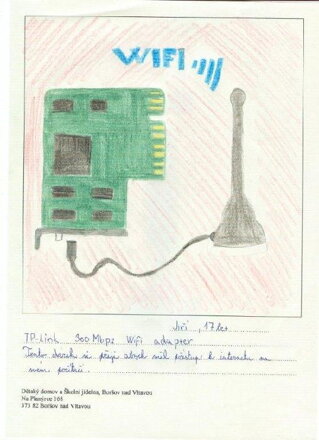 WIFI
Jiří, 17 let
TP-Link 300Mbps Wifi adapter
Tento dárek si přeji abych měl přístup k internetu na
mém počítači.
Dětský domov a Školní jídelna, Boršov nad Vltavou
Na Planýrce 168
373 82 Boršov nad Vltavou